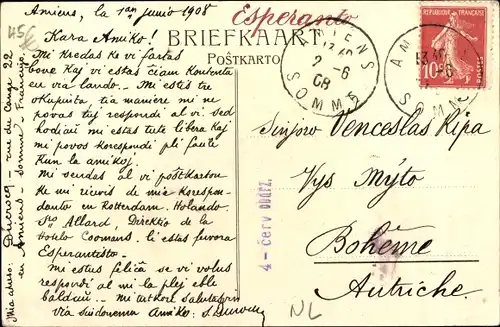 Amiens, la 1an junio 1908
Esperanto
BRIEFKAART
POSTKARTO
Kara Amiko!
Mi kredas ke vi fartas
bone kaj vi estas ĉiam kontenta
en via lando. Mi estis tre
okupita, tia maniere mi ne
povas tuj respondi al vi sed
hodiaŭ mi estas tute libera kaj
mi povos korespondi pli ofte
Kun la amikoj.
Mi sendas al vi poŝtkarton
ke mi ricevis de mia korespon-
danto en Rotterdam. Holando.
So Allard, Direktio de la
Hotelo Coomans. li estas fervora
Esperantisto.
Mi estus feliĉa se vi volus
respondi al mi la plej eble
baldaŭ.. Mi
via sindonema Amiko:
Mia adreso: Ducrocq - rue du Cange 22
en Amiens - Somme - Francujo
AMIENS
2-6
08
SOMME
REPUBLIQUE FRANÇAISE
10c
POSTES
AM
SOMME
Sinjoro Venceslas Ripa
Vys Mýto
Bohême
Autriche.
4 - červ obdrž.
NL